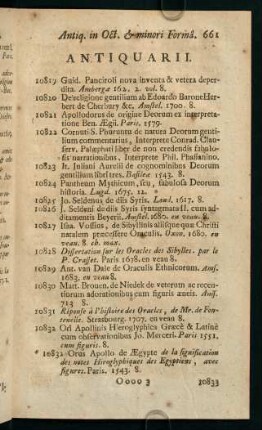 Antiq. in Oct. & minori Formâ. 661
ANTIQUARII.
10819 Guid. Panciroli nova inventa & vetera deper-
dita. Ambergæ 162. 2. vol. 8.
10820 De religione gentilium ab Edoardo Barone Her-
bert de Cherbury &c. Amstel. 1700. 8.
10821 Apollodorus de origine Deorum ex interpreta-
tione Ben. Ægii. Paris. 1575.
10822 Cornuti S. Phurnuti de natura Deorum genti-
lium commentarius, Interprete Conrad. Clau-
serv. Palæphati liber de non credendis fabulo-
sis narrationibus. Interprete Phil. Phasianino.
10823 Jr. Juliani Aurelii de cognominibus Deorum
gentilium libri tres. Basileæ 1543. 8.
10824 Pantheum Mythicum, seu, fabulosa Deorum
historia. Lugd. 1675. 12.
10825 Jo. Seldenus de diis Syris. Lond. 1617. 8.
10826 J. Seldeni de diis Syris syntagmata II. cum ad-
ditamentis Beyerii. Amstel. 1680. en veau. 8.
10827 Isaa. Vossius, de Sibyllinis aliisque quæ Christi
natalem præcessere Oraculis. Oxon. 1680. en
veau. 8. ch. man.
10828 Dissertation sur les Oracles des Sibylles. par le
P. Crasset. Paris 1678. en veau 8.
10829 Ant. van Dale de Oraculis Ethnicorum. Ams.
1683. en veau 8.
10830 Mart. Brouen. de Niedek de veterum ac recen-
tiorum adorationibus cum figuris æneis. Amst.
713 8.
10831 Réponse à l'histoire des Oracles, de Mr. de Fon-
tenelle. Strasbourg. 1707. en veau 8.
10832 Ori Apollinis Hieroglyphica Græcè & Latinè
cum observationibus Jo. Merceri. Paris 1551.
cum figuris. 8.
* 10832 Orus Apollo de Ægypte de la signification
des notes Hieroglyphiques des Egyptiens, avec
figures. Paris. 1543. 8.
Oooo 3 10833